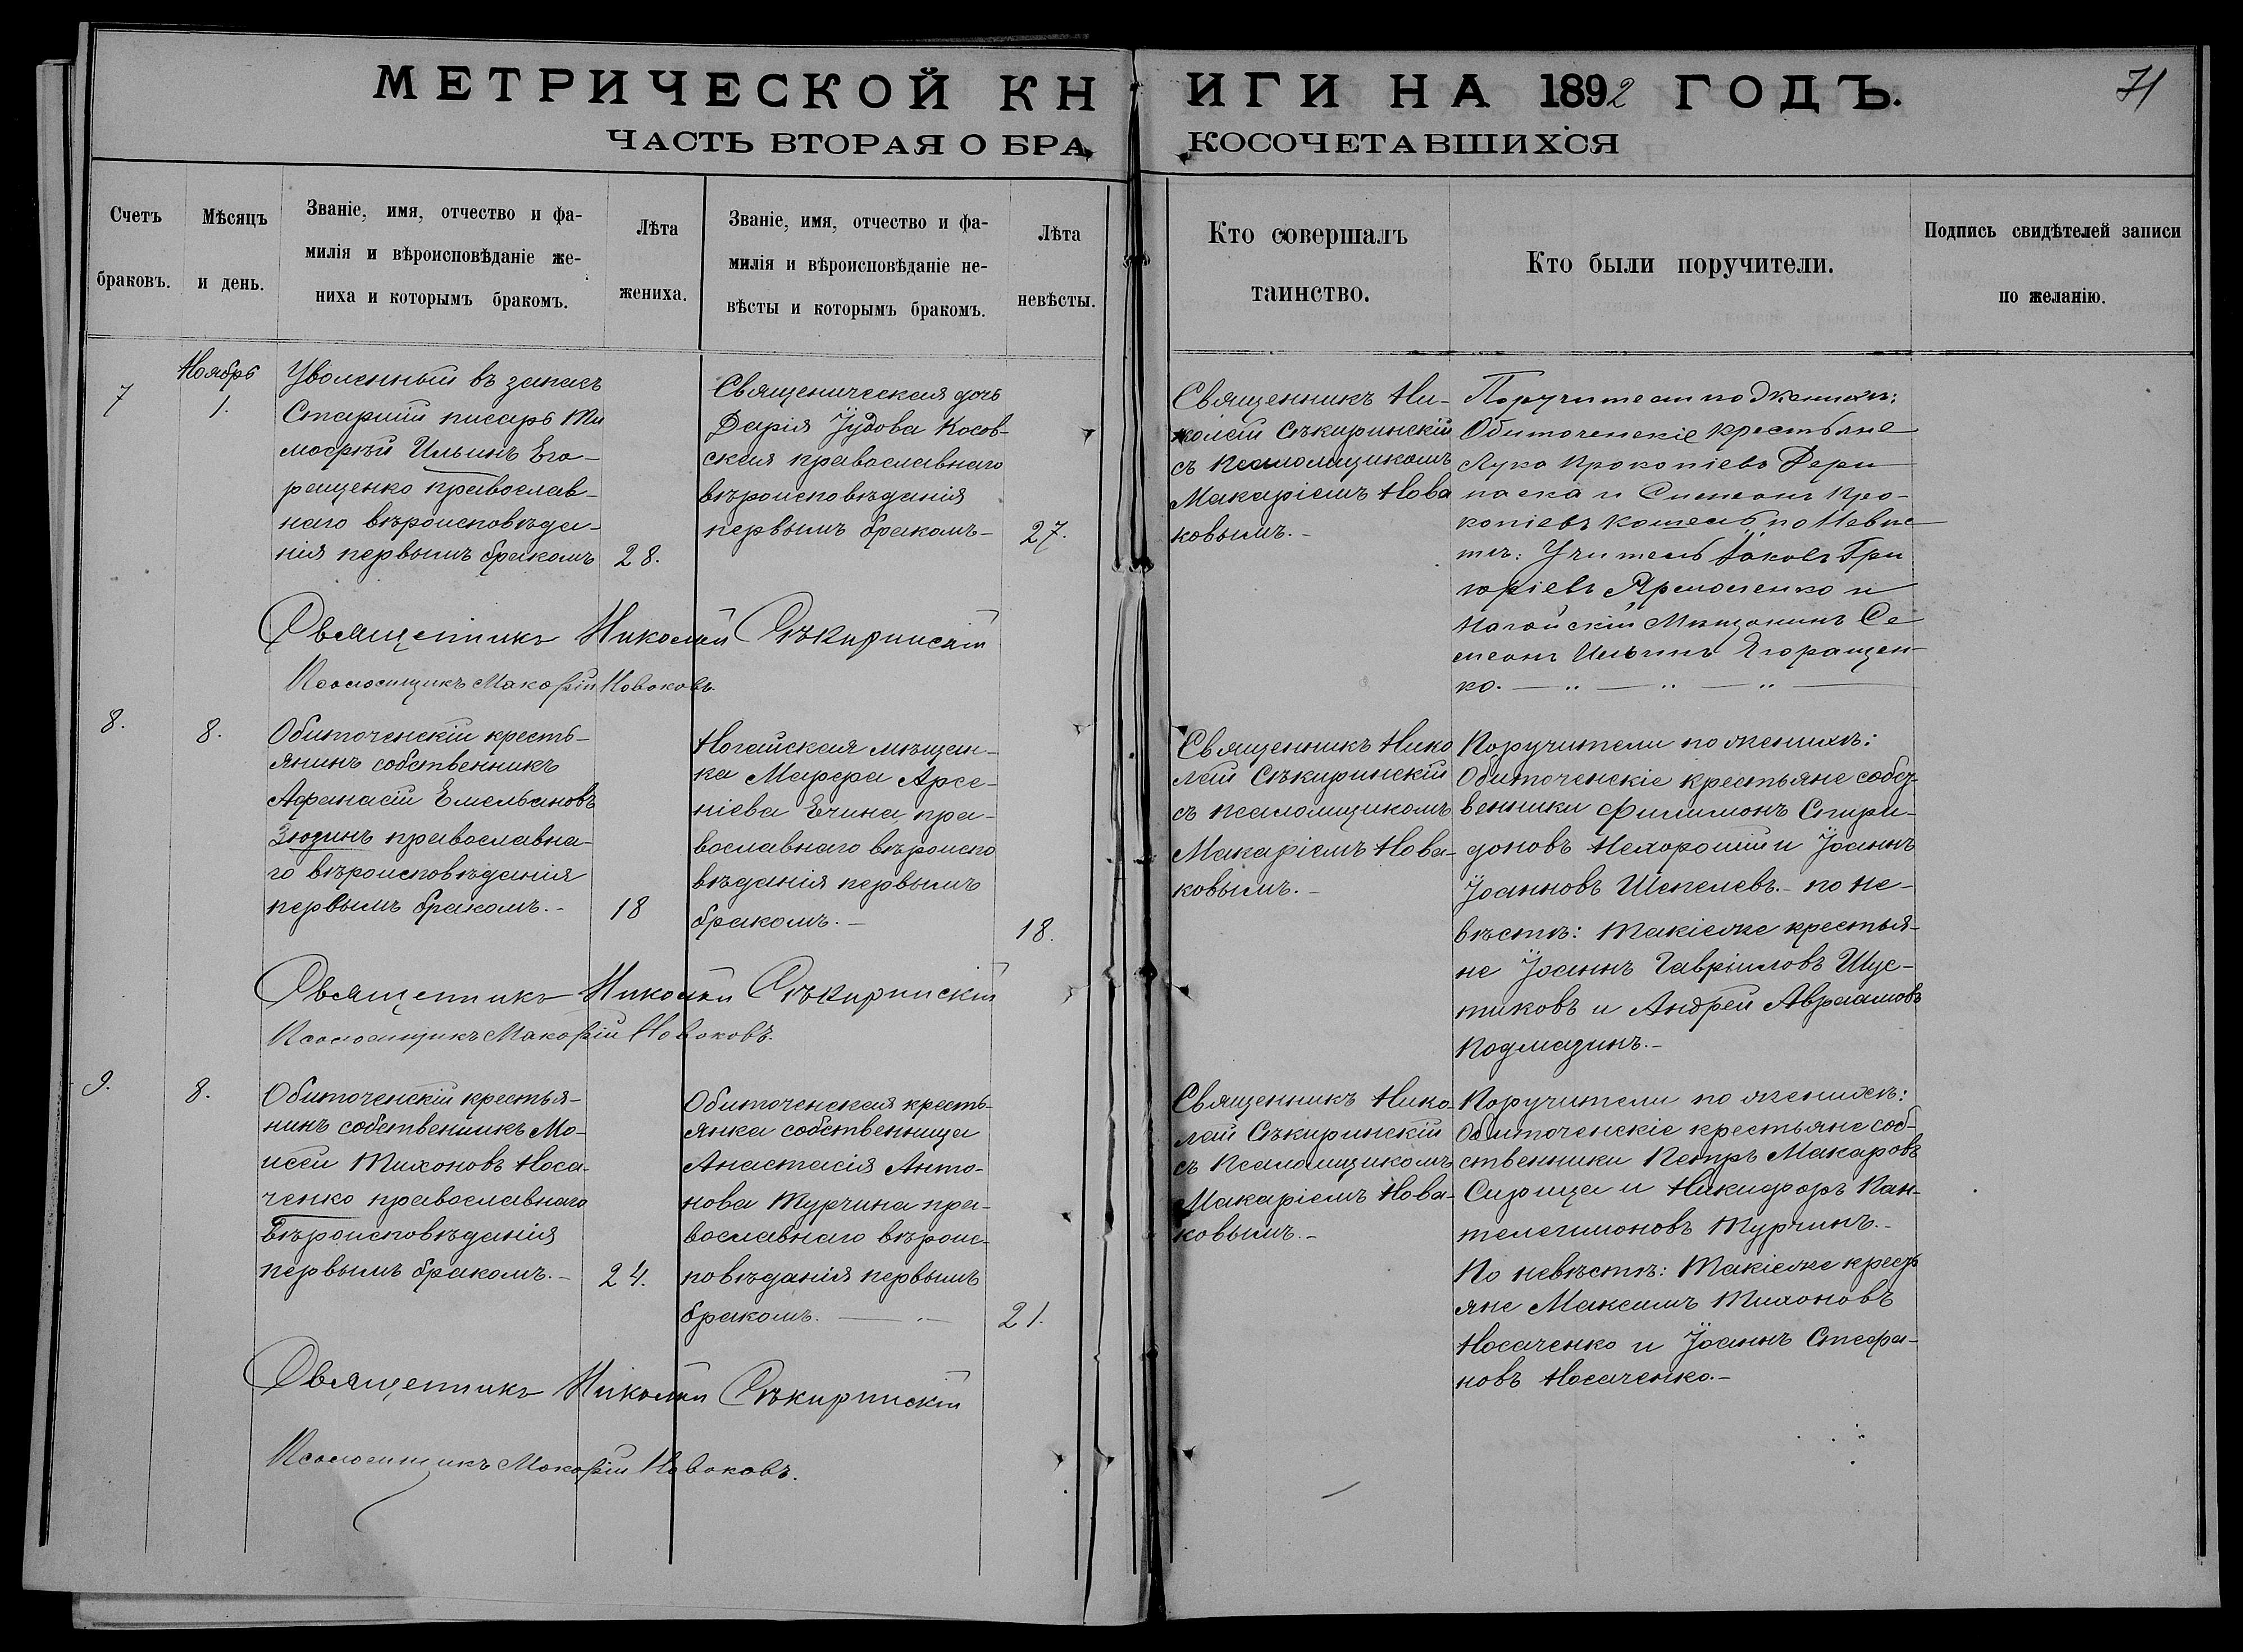 МЕТРИЧЕСКОЙ КНИГИ НА 1892 ГОДЪ.
71
ЧАСТЬ ВТОРАЯ О БРАКОСОЧЕТАВШИХСЯ
Счетъ
браковъ.
Мѣсяцъ
и день.
Званіе, имя, отчество и фа-
милія и вѣроисповѣданіе же-
ниха и которымъ бракомъ.
Лѣта
жениха.
Званіе, имя, отчество и фа-
милія и вѣроисповѣданіе не-
вѣсты и которымъ бракомъ.
Лѣта
невѣсты.
Кто совершалъ
таинство.
Кто были поручители.
Подпись свидѣтелей записи
по желанію.
7
Ноябрь
1.
Уволенный въ запасъ
Старшій писарь Ти
мофѣй Ильинъ Его-
ращенко православ-
наго вѣроисповѣда-
нія первымъ бракомъ
28.
Священическая дочь
Дарія Іудова Косов-
ская православнаго
вѣроисповѣданія
первымъ бракомъ-
27.
Священникъ Ни-
колай Сѣкиринскій
съ псаломщикомъ
Макаріемъ Нова
ковымъ.-
Поручители по Женихѣ:
Обиточенскіе крестьяне
Лука Прокопіевъ Дери
паска и Симеонъ Про-
копіевъ Кошель, по Невѣс
тѣ: Учитель Іаковъ Гри
горіевъ Ярмоленко и
Ногайскій Мѣщанинъ Си
меонъ Ильинъ Егоращен-
ко.
Священникъ Николай Сѣкиринскій
Псаломщикъ Макарій Новаковъ.
8.
8.
Обиточенскій кресть-
янинъ собственникъ
Афанасій Емельяновъ
Зюзинъ православна-
го вѣроисповѣданія
первымъ бракомъ.-
18
Ногайская мѣщан-
ка Марфа Арсе-
ніева Ечина, пра-
вославнаго вѣроиспо
вѣданія первымъ
бракомъ.-
18.
Священникъ Нико
лай Сѣкиринскій
съ псаломщикомъ
Макаріемъ Нова-
ковымъ.-
Поручители по женихѣ:
Обиточенскіе крестьяне собст
венники Филимонъ Спири-
доновъ Нехорошій и Іоаннъ
Іоанновъ Шепелевъ.- по не-
вѣстѣ: Такіеже крестья-
не Іоаннъ Гавріиловъ Шус-
тиковъ и Андрей Авраамовъ
Подмазинъ.-
Священникъ Николай Сѣкиринскій
Псаломщикъ Макарій Новаковъ.
9.
8.
Обиточенскій крестья-
нинъ собственникъ Мо-
исей Тихоновъ Носа-
ченко православнаго
вѣроисповѣданія
первымъ бракомъ.-
24.
Обиточенская кресть-
янка собственница
Анастасія Анто-
нова Турчина пра-
вославнаго вѣроис-
повѣданія первымъ
бракомъ.
21.
Священникъ Нико-
лай Сѣкиринскій
съ псаломщикомъ
Макаріемъ Нова-
ковымъ.-
Поручители по женихѣ:
Обиточенскіе крестьяне соб-
ственники Петръ Макаровъ
Сирица и Никифоръ Пан-
телеимоновъ Турчинъ.-
По невѣстѣ: Такіеже кресть
яне Максимъ Тихоновъ
Носаченко и Іоаннъ Стефа-
новъ Носаченко.-
Священникъ Николай Сѣкиринскій
Псаломщикъ Макарій Новаковъ.